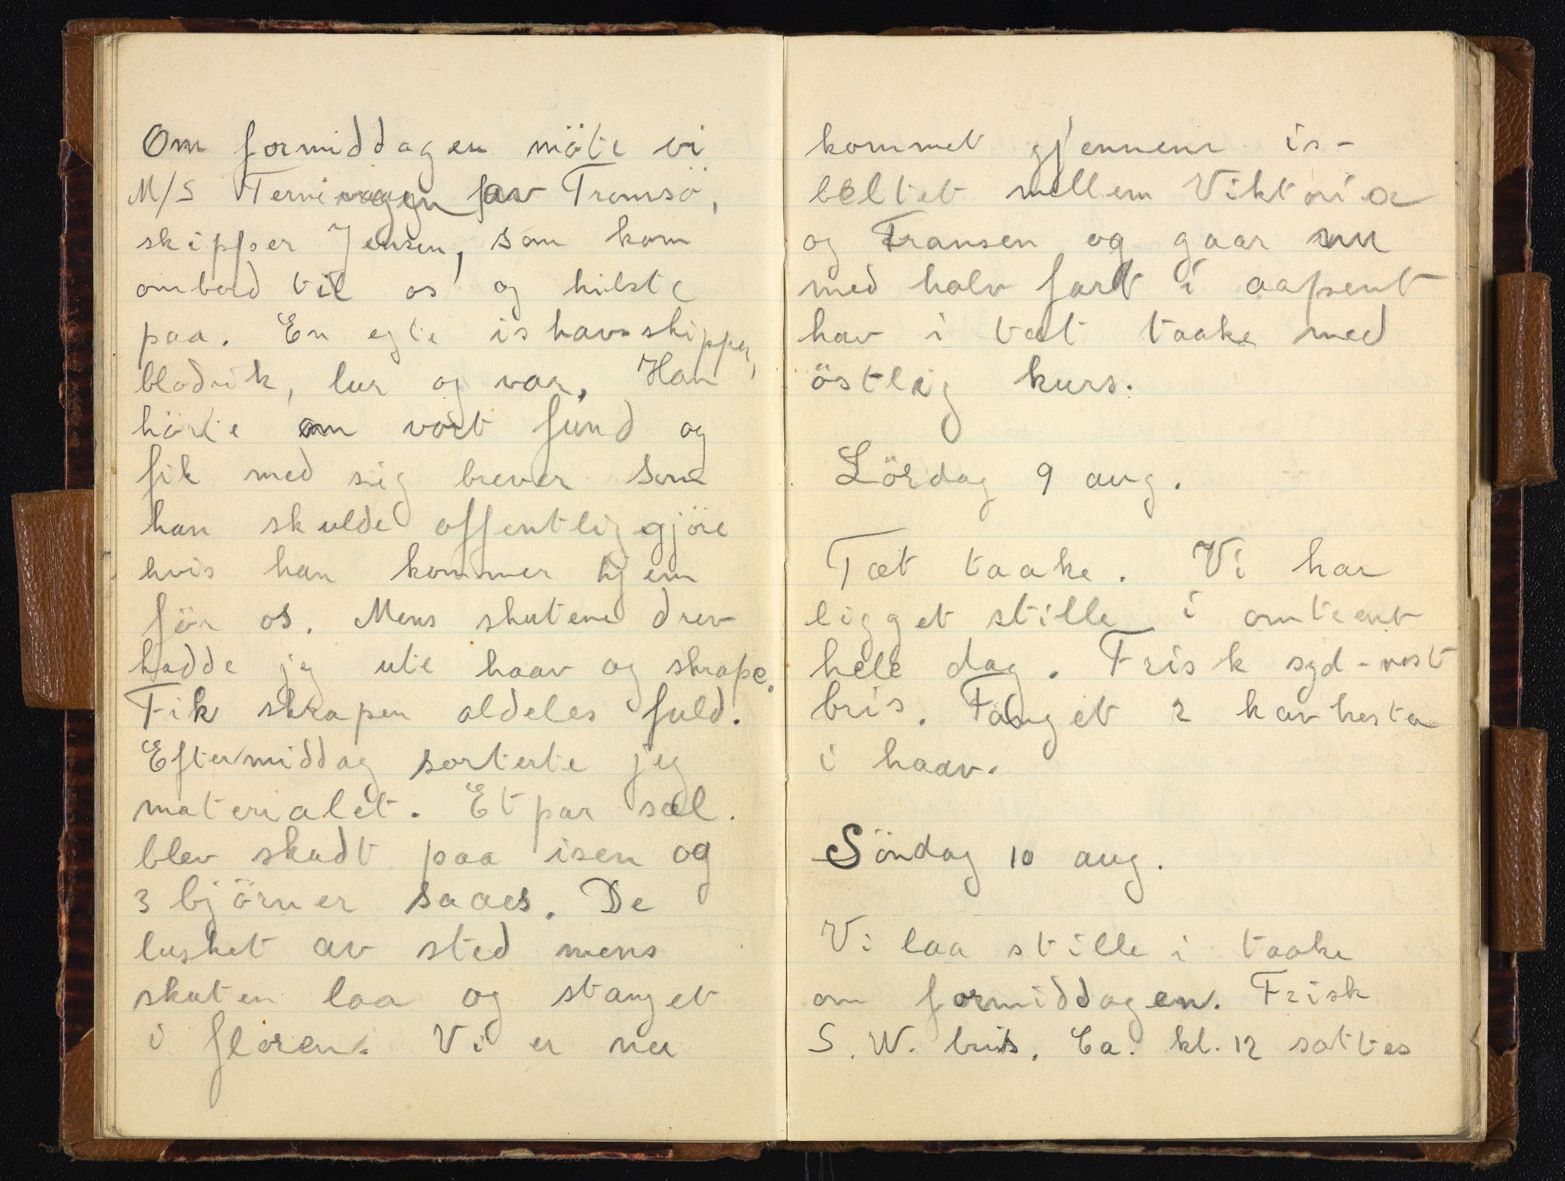 Om formiddagen möte vi
M/S Terningen av Tromsö,
skipper Jensen, som kom
ombord til os og hilste
paa. En egte ishavsskipper,
blodrik, lur og var. Han
hörte om vort fund og
fik med sig brever som
han skulde offentliggjöre
hvis han kommer hjem
för os. Mens skutene drev
hadde jeg ute haav og skrape.
Fik skrapen aldeles fuld.
Eftermiddag sorterte jeg
materialet. Et par sæl
blev skudt paa isen og
3 björner saaes. De
lusket av sted mens
skuten laa og stanget
i floren. Vi er nu
kommet gjennem is-
beltet mellem Viktoria
og Fransen og gaar nu
med halv fart i aapent
hav i tæt taake med
östlig kurs.
Lördag 9 aug.
Tæt taake. Vi har
ligget stille i omtrent
hele dag. Frisk syd-vest
bris. Fanget 2 havhester
i haav.
Söndag 10 aug.
Vi laa stille i taake
om formiddagen. Frisk
S.W. bris. Ca. kl. 12 sattes